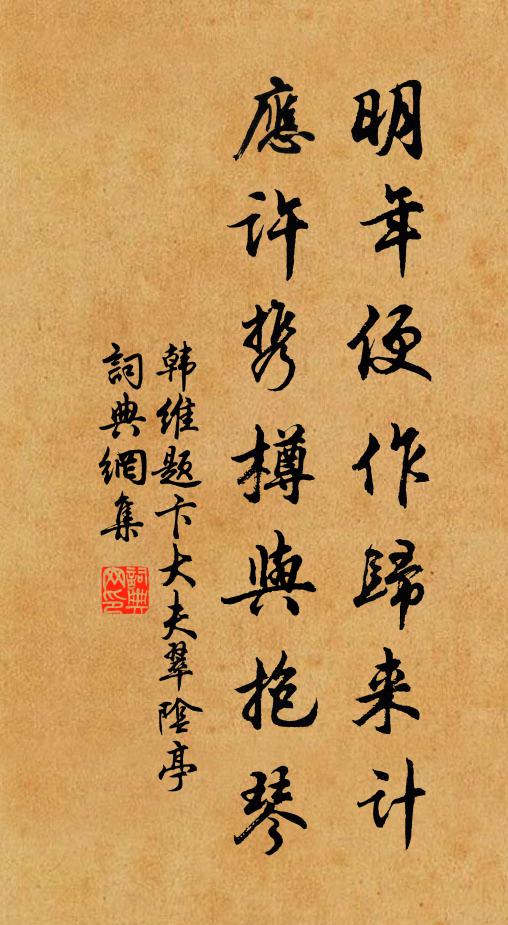 明年便作歸来计
應许携樽與抱琴
韩维题卞大夫翠陰亭
詞典網集
詞典网印